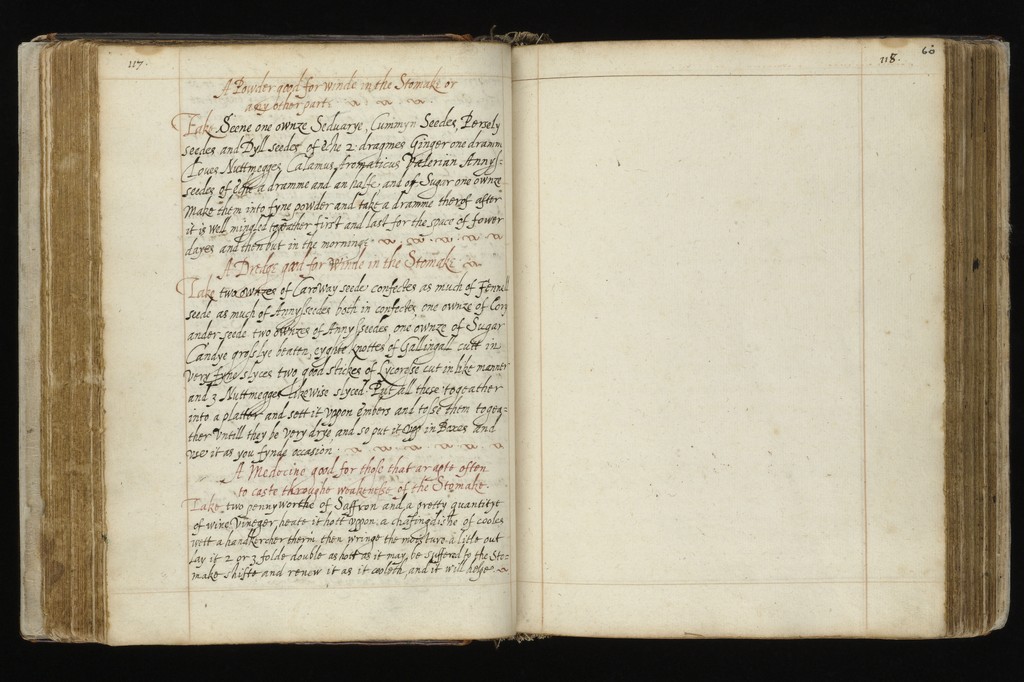 117.
A Powder good for winde in the Stomake or
any other parte
Take Seene one ownze Seduarye, Cummyn Seedes, Persely
seedes and Dyll seedes of eche 2 dragmes Ginger one dramm
Cloues Nuttmegges, Calamus Aromaticus Valerian Annys=
seedes of eche a dramme and an halfe and of Sugar one ownze
Make them into fyne powder and take a dramme therof after
it is well mingled togeather first and last for the space of fower
dayes and then but in the morninge
A Dredge good for Winde in the Stomake
Take two ownzes of Caroway seede confectes as much of Fennell
seede as much of Annysseedes both in confectes one ownze of Cory
ander seede two ownzes of Annysseedes one ownze of Sugar
Candye groslye beaten, eyghte knottes of Gallingall cutt in
very fyne slyces two good stickes of Lycorose cut in like manner
and 3 Nuttmegges likewise slyced. Put all these togeather
into a platter and sett it vppon embers and tosse them togea=
ther vntill they be very drye, and so put it vpp in Boxes and
vse it as you fynde occasion.
A Medecine good for those that ar apte often
to caste throughe weakenesse of the Stomake.
Take two pennyworthe of Saffron and a pretty quantitye
of wine Vineger, heate it hott vppon a chafingdishe of cooles
wett a handkercher therin then wringe the moisture a litle out
lay it 2 or 3 folde double as hott as it may be suffered to the Sto=
make shifte and renew it as it cooleth, and it will helpe.
118.
60